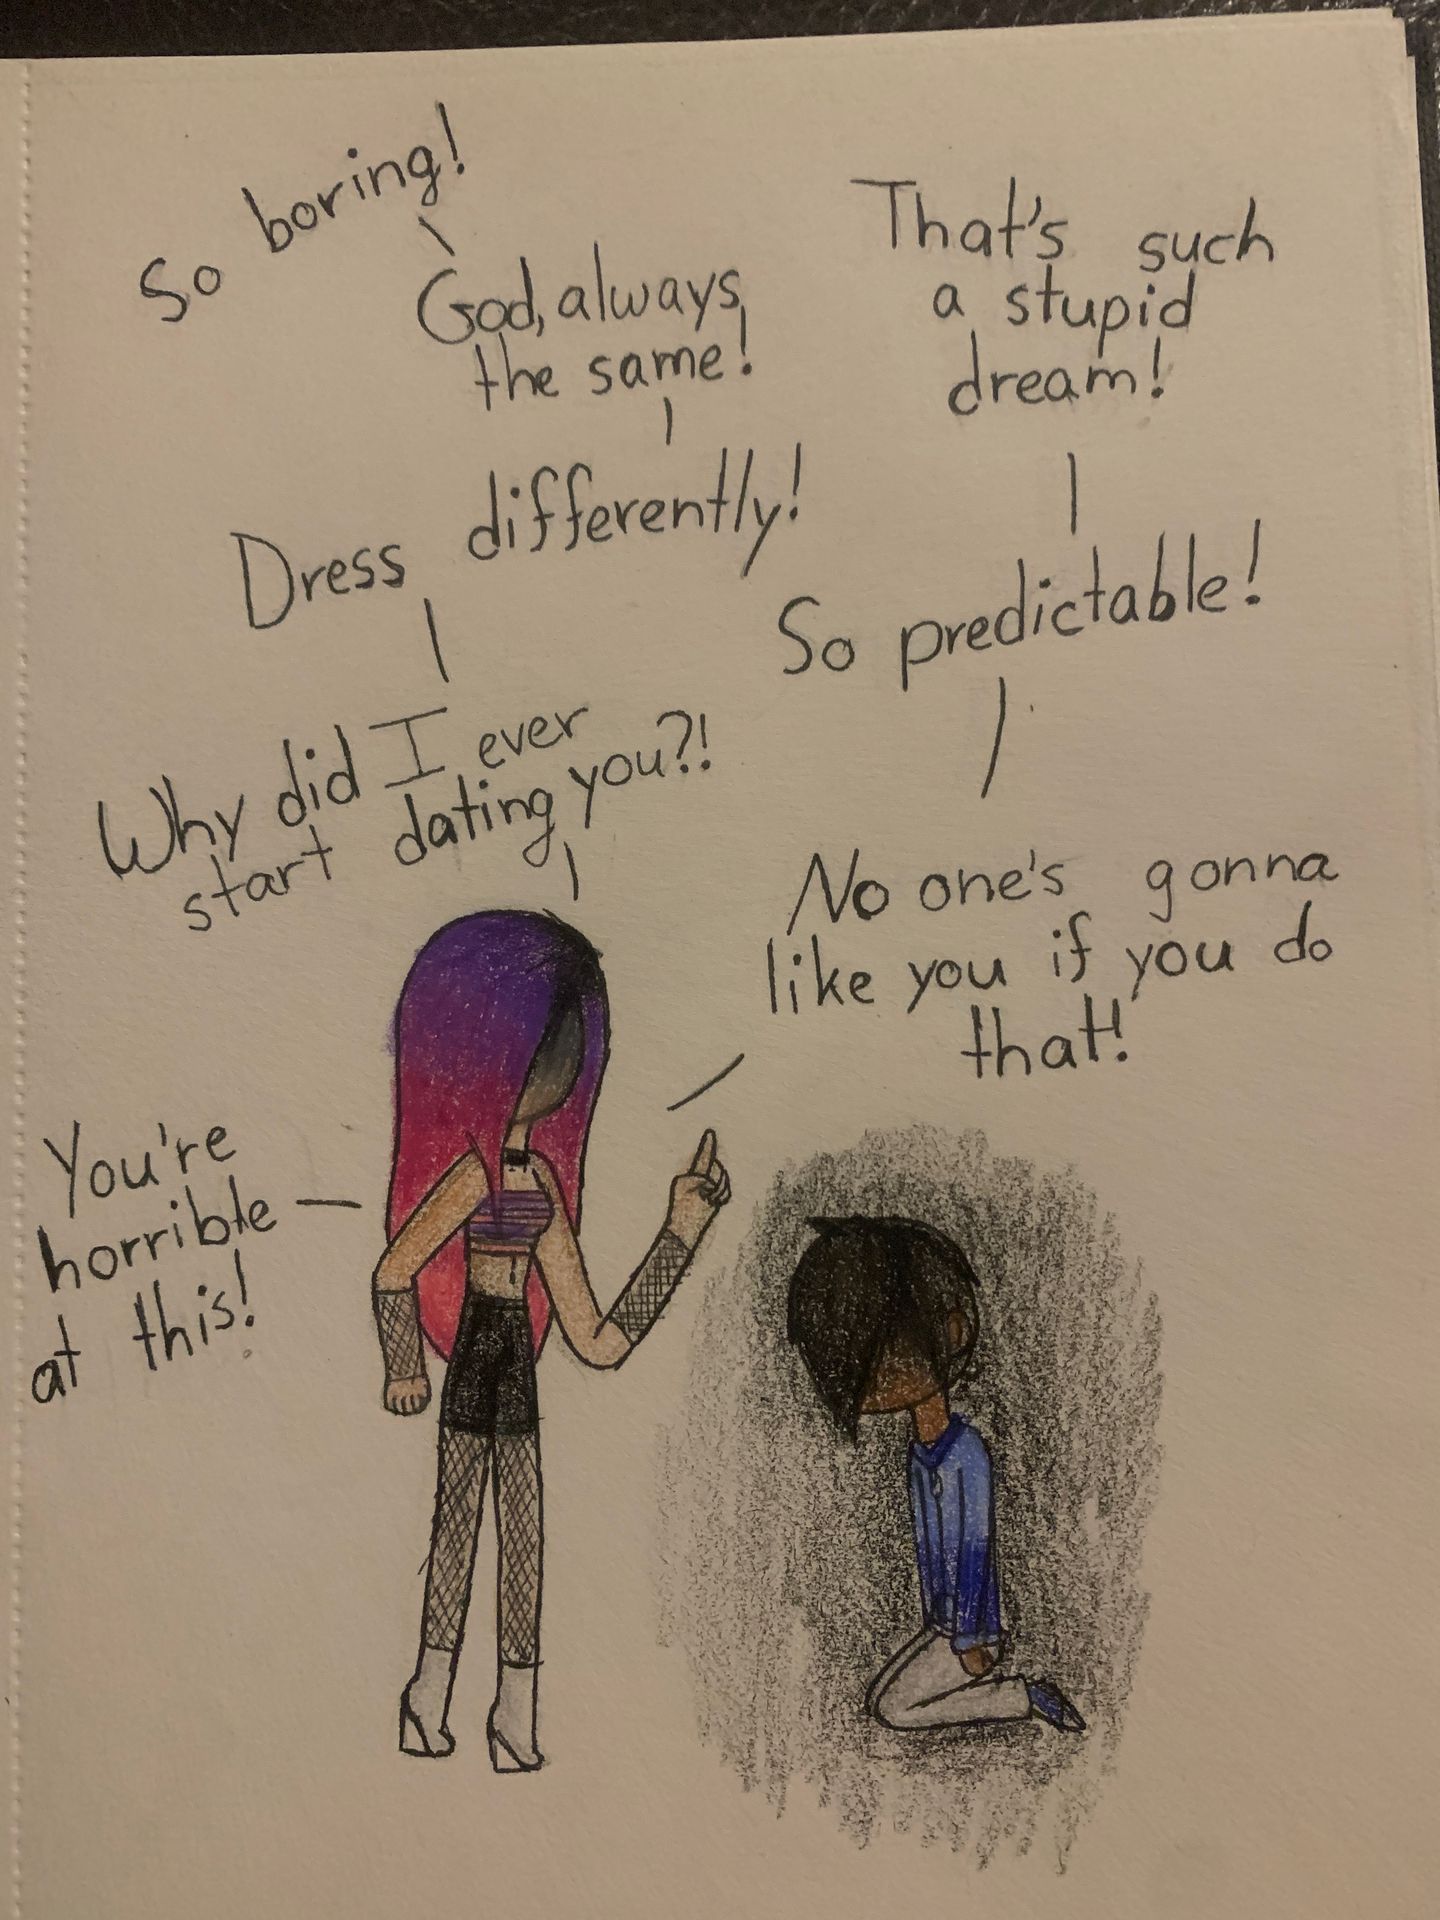 So boring!
God, always
the same!
Dress differently!
Why did I ever
start dating you?!
You're
horrible
at this!
That's such
a stupid
dream!
So predictable!
No one's gonna
like you if you do
that!